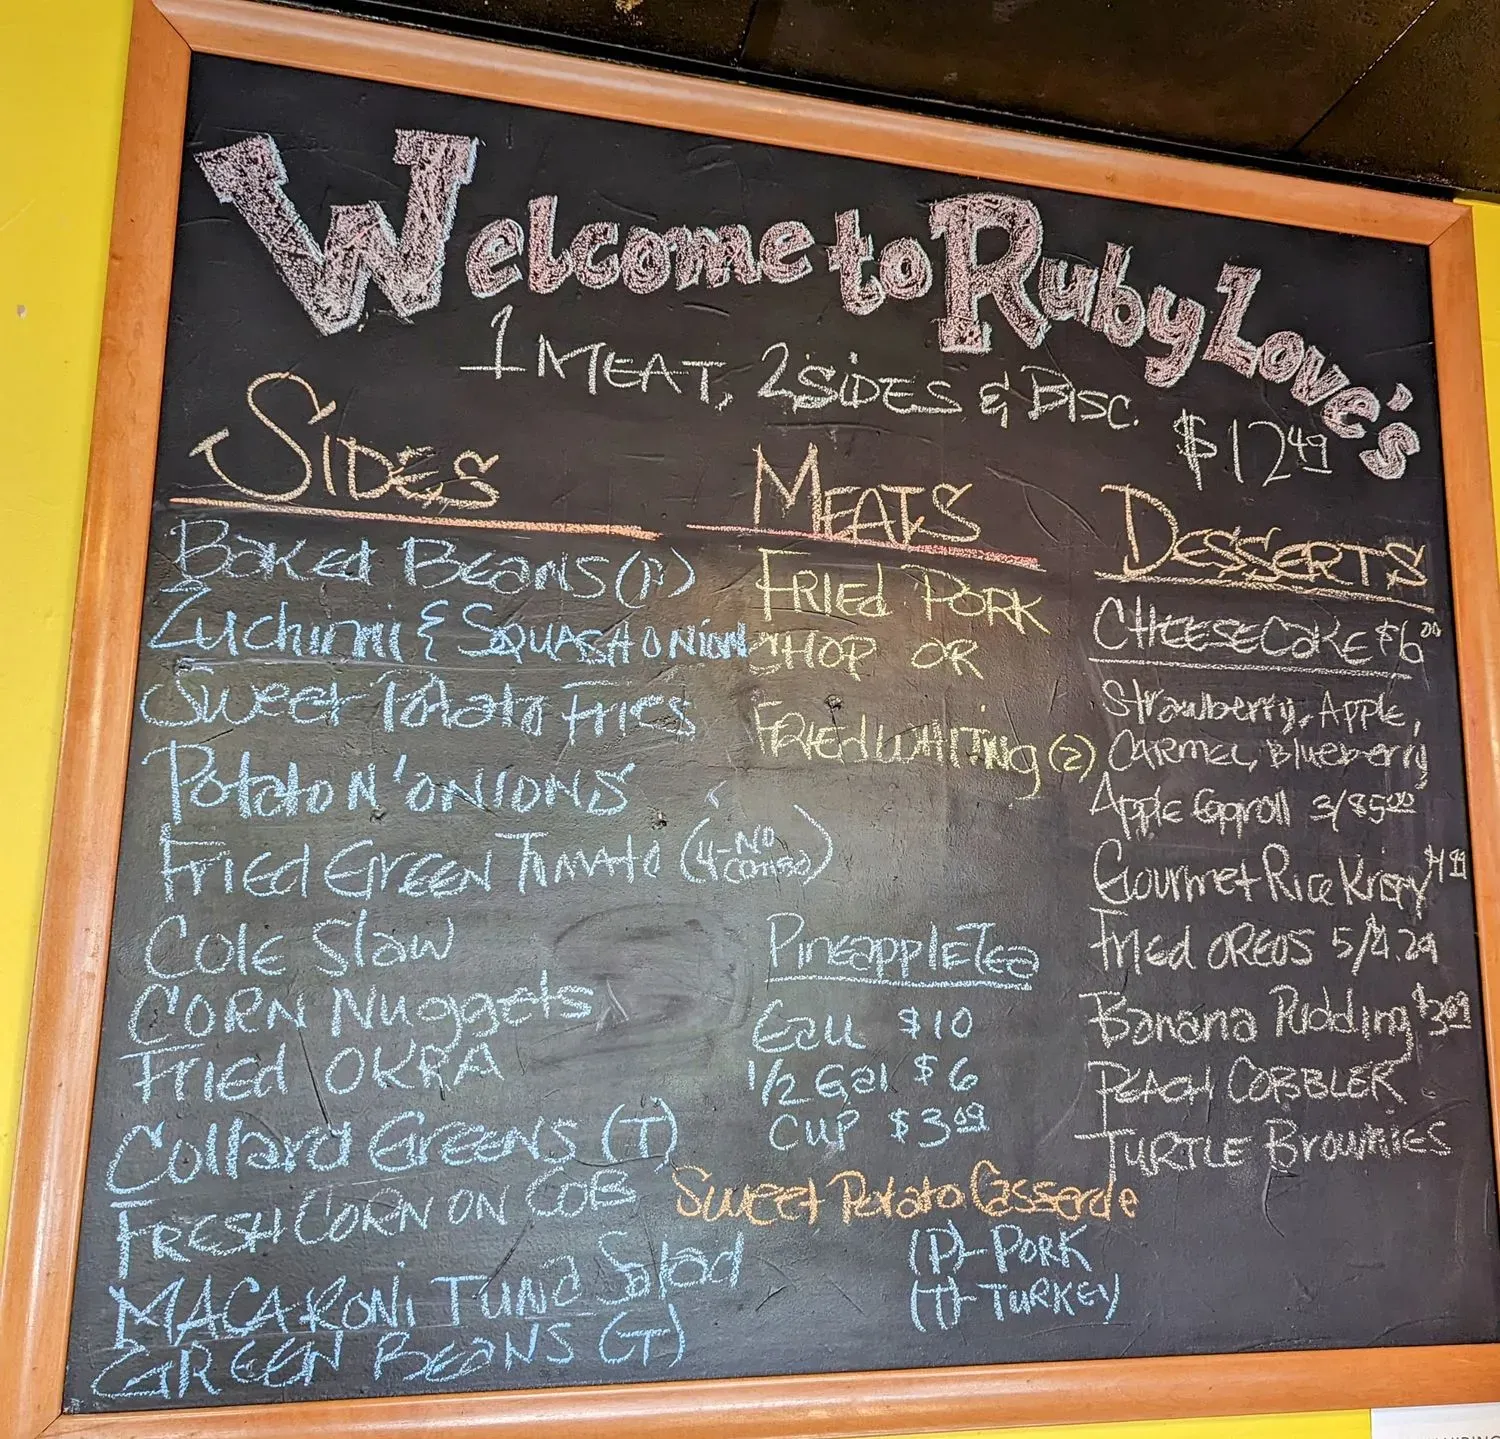 Welcome to Ruby Love's
1 MEAT, 2 SIDES & BISC. $12.49
SIDES
BAKED BEANS (P)
Zuchinni & SQUASH ONION
Sweet Potato Fries
Potato N' ONIONS
Fried GREEN Tomato (4-NO COMBO)
Cole Slaw
CORN Nuggets
Fried OKRA
Collard GREENS (T)
FRESH CORN ON COB
MACARONi TUNa Salad
GREEN BEANS (T)
MEATS
FRIED PORK
CHOP OR
FRIED WHiTiNg (2)
PineappleTea
Gall $10
1/2 Gal $6
CUP $3.09
Sweet Potato Casserole
(P)- PORK
(T)- TURKEY
DESSERTS
CHEESECAKE $6.00
Strawberry, Apple,
CARMEL, Blueberry
Apple Eggroll 3/$5.00
Gourmet Rice Krispy
Fried OREOS 5/4.29
Banana Pudding
PEACH COBBLER
TURTLE BROWNIES